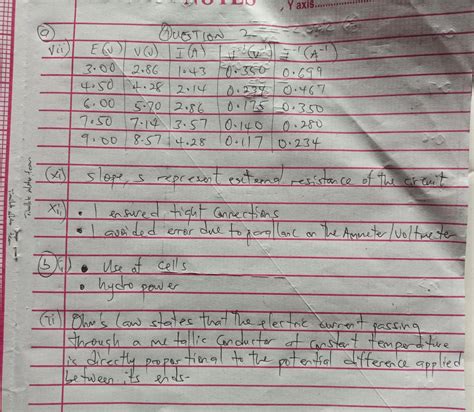 NOTES
, Y axis
(a) QUESTION 2
vii) E(v) V(v) I(A) V⁻¹(V⁻¹) I⁻¹(A⁻¹)
3.00 2.86 1.43 0.350 0.699
4.50 4.28 2.14 0.234 0.467
6.00 5.70 2.86 0.175 0.350
7.50 7.14 3.57 0.140 0.280
9.00 8.57 4.28 0.117 0.234
(xi) slope, s represent external resistance of the circuit
xii) • I ensured tight connections
• I avoided error due to parallax on the Ammeter/Voltmeter
(b)(i) • Use of cells
• hydro power
(ii) Ohm's law states that the electric current passing
through a metallic conductor at constant temperature
is directly proportional to the potential difference applied
between its ends.